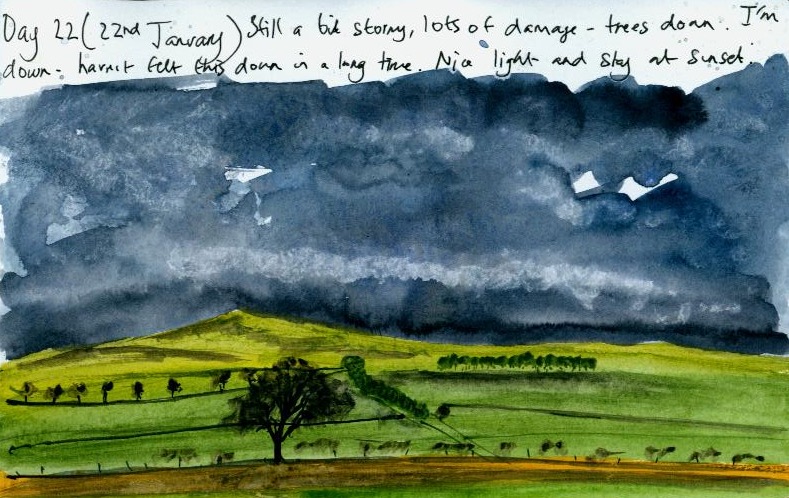 Day 22 (22nd January) Still a bit stormy, lots of damage - trees down. I'm
down - havn't felt this down in a long time. Nice light and sky at sunset.